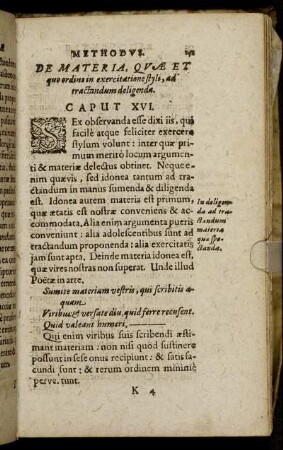 METHODVS.
DE MATERIA, QVÆ ET
quo ordine in exercitatione styli, ad
tractandum deligenda.
CAPUT XVI.
SEx observanda esse dixi iis, qui
facilè atque feliciter exercere
stylum volunt: inter quæ pri-
mum meritò locum argumen-
ti & materiæ delectus obtinet. Neque e-
nim quævis, sed idonea tantum ad tra-
ctandum in manus sumenda & diligenda
est. Idonea autem materia est primum,
quæ ætatis est nostræ conveniens & ac-
commodata. Alia enim argumenta pueris
conveniunt: alia adolescentibus sunt ad
tractandum proponenda: alia exercitatis
jam sunt apta. Deinde materia idonea est,
quæ vires nostras non superat. Unde illud
Poëtæ in arte.
In deligen-
da ad tra-
ctandum
materia
quæ spe-
ctanda.
Sumite materiam vestris, qui scribitis æ-
quam
Viribus & versate diu, quid ferre recusent,
Quid valeant humeri,
Qui enim viribus suis scribendi æsti-
mant materiam: non nisi quod sustinere
possunt in sese onus recipiunt: & satis fa-
cundi sunt: & rerum ordinem minimè
pervertunt.
K 4